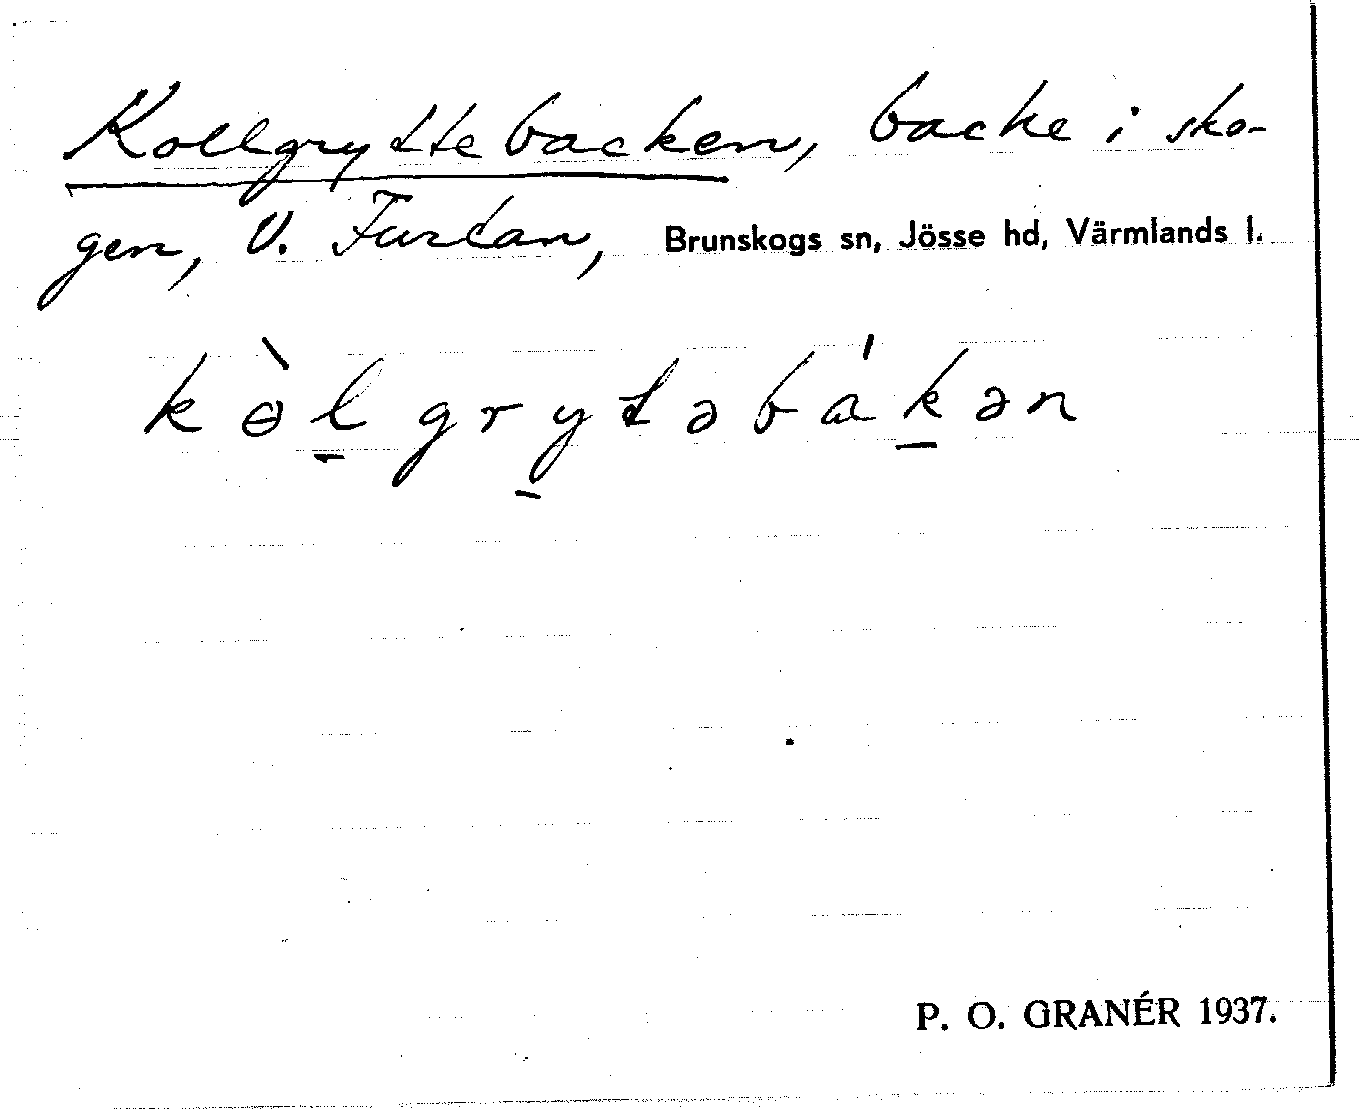 Kollgryttebacken, backe i sko-
gen, V. Furtan, Brunskogs sn, Jösse hd, Värmlands l.
kɵ̀l̲gry̲təbákə̲n
P. O. GRANÉR 1937.